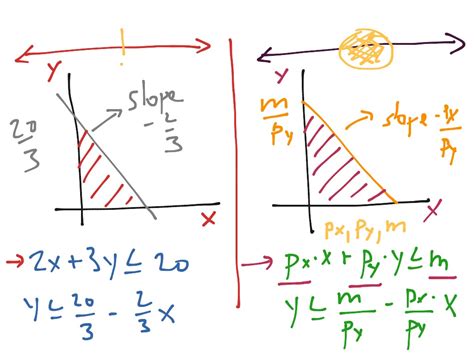 Y
slope
- 2/3
20/3
X
→ 2x + 3y ≤ 20
y ≤ 20/3 - 2/3 x
Y
m/Py
slope - Px/Py
X
Px, Py, m
→ Px·x + Py·y ≤ m
y ≤ m/Py - Px/Py · x